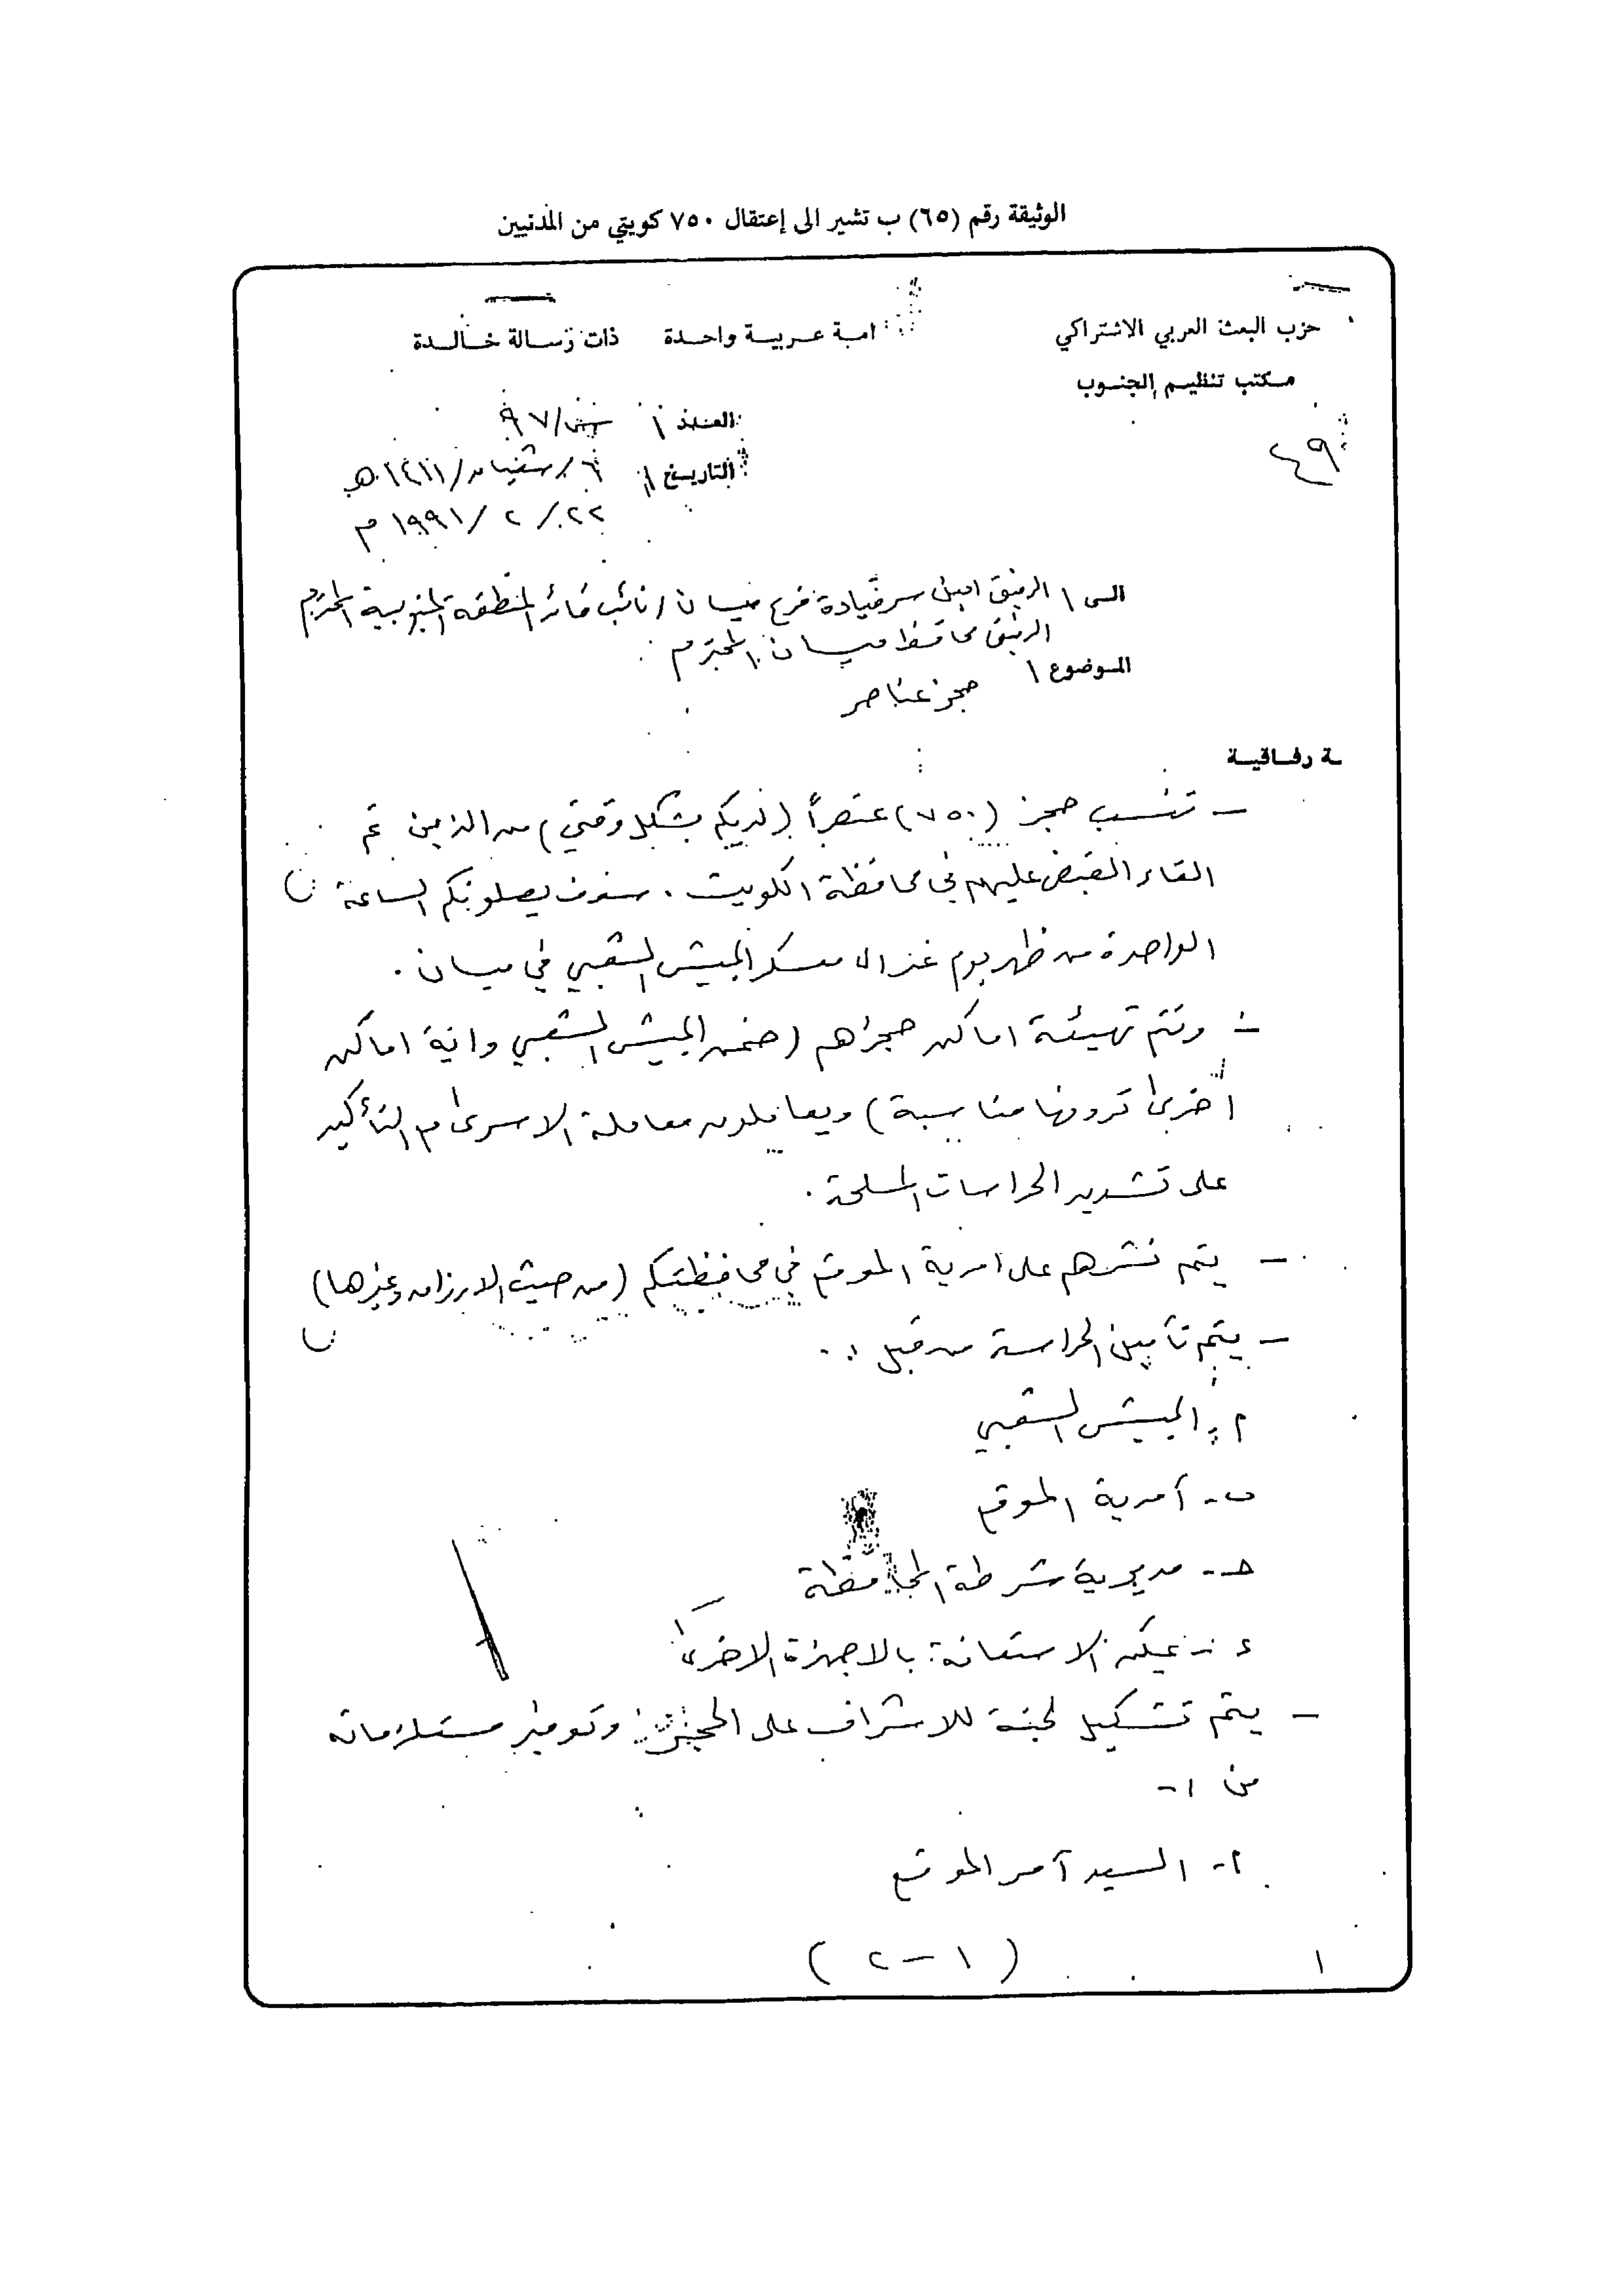 الوثيقة رقم (٦٥) ب تشير الى إعتقال ٧٥٠ كويتي من المدنيين
حزب البعث العربي الاشتراكي
امة عربية واحدة ذات رسالة خالدة
مكتب تنظيم الجنوب
العدد / ٩٧/
٤٩
التاريخ / ٦ / شعبان / ١٤١١ هـ
٢٢ / ٢ / ١٩٩١ م
الى / الرفيق امين سر قيادة فرع ميسان / نائب قائد المنطقة الجنوبية المحترم
الرفيق محافظ ميسان المحترم
الموضوع / حجز عناصر
ـة رفاقية
– تنسب حجز (٧٥٠) عنصراً (لديكم بشكل وقتي) من الذين تم
القاء القبض عليهم في محافظة الكويت . سوف يصلونكم الساعة
الواحدة من ظهر يوم غد الى معسكر الجيش الشعبي في ميسان .
– وتتم تهيئة اماكن حجزهم (ضمن الجيش الشعبي واية اماكن
أخرى ترونها مناسبة) ويعاملون معاملة الاسرى مع التأكيد
على تشديد الحراسات المسلحة .
– يتم نشرهم على امرية الموقع في محافظتكم (من حيث الارزاق وغيرها)
– يتم تأمين الحراسة من قبل :.
أ- الجيش الشعبي
ب- آمرية الموقع
حـ- مديرية شرطة المحافظة
د- يمكن الاستعانة بالاجهزة الاخرى
– يتم تشكيل لجنة للاشراف على الحجز وتوفير مستلزماته
من :-
أ- السيد آمر الموقع
(١ – ٢)
١